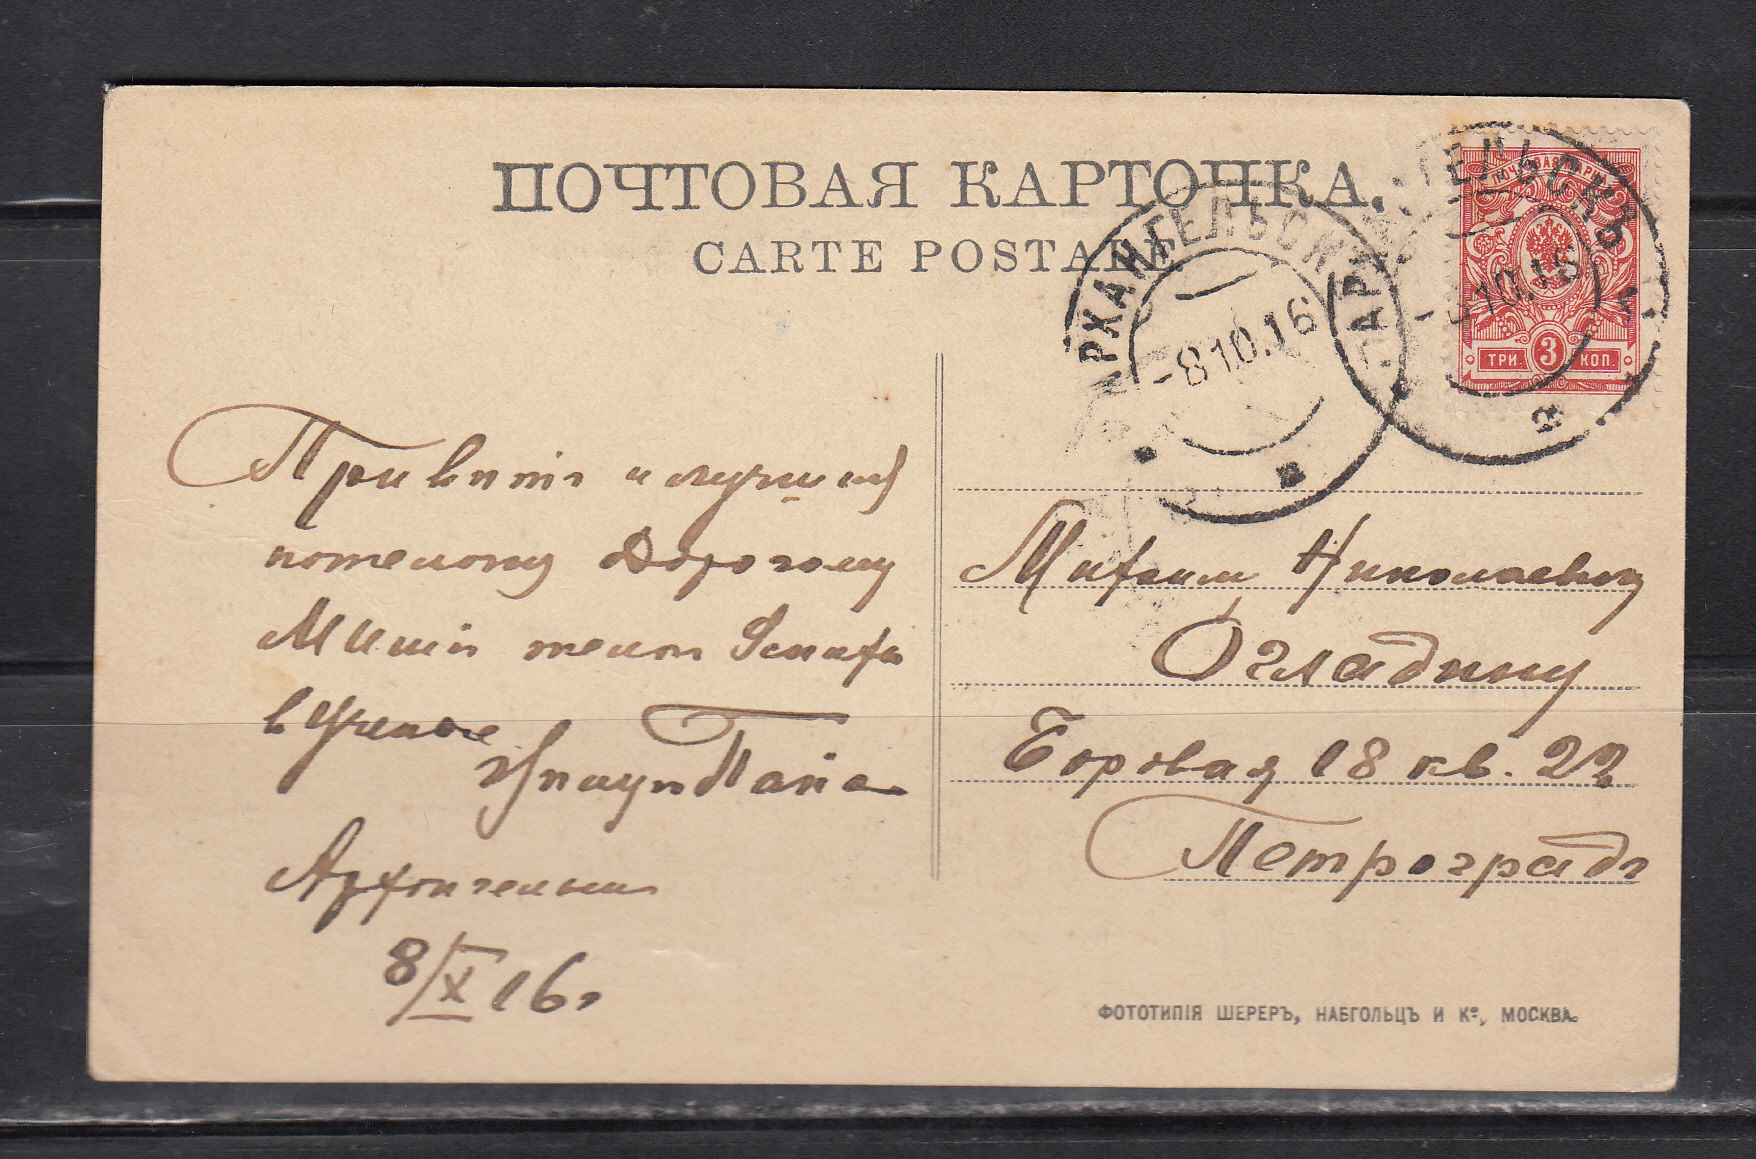 ПОЧТОВАЯ КАРТОЧКА.
CARTE POSTALE
АРХАНГЕЛЬСК
-8 10.16
АРХАНГЕЛЬСКЪ
10.16
ПОЧТОВАЯ МАРКА
ТРИ 3 КОП.
Привѣтъ и лучшія
пожеланія Дорогому
Мишѣ желаю
в
Папа
Архангельскъ
8/X 16 г
Михаилу Николаевичу
Огладину
Боровая 18 кв. 22
Петроградъ
ФОТОТИПІЯ ШЕРЕРЪ, НАБГОЛЬЦЪ И Кº, МОСКВА.